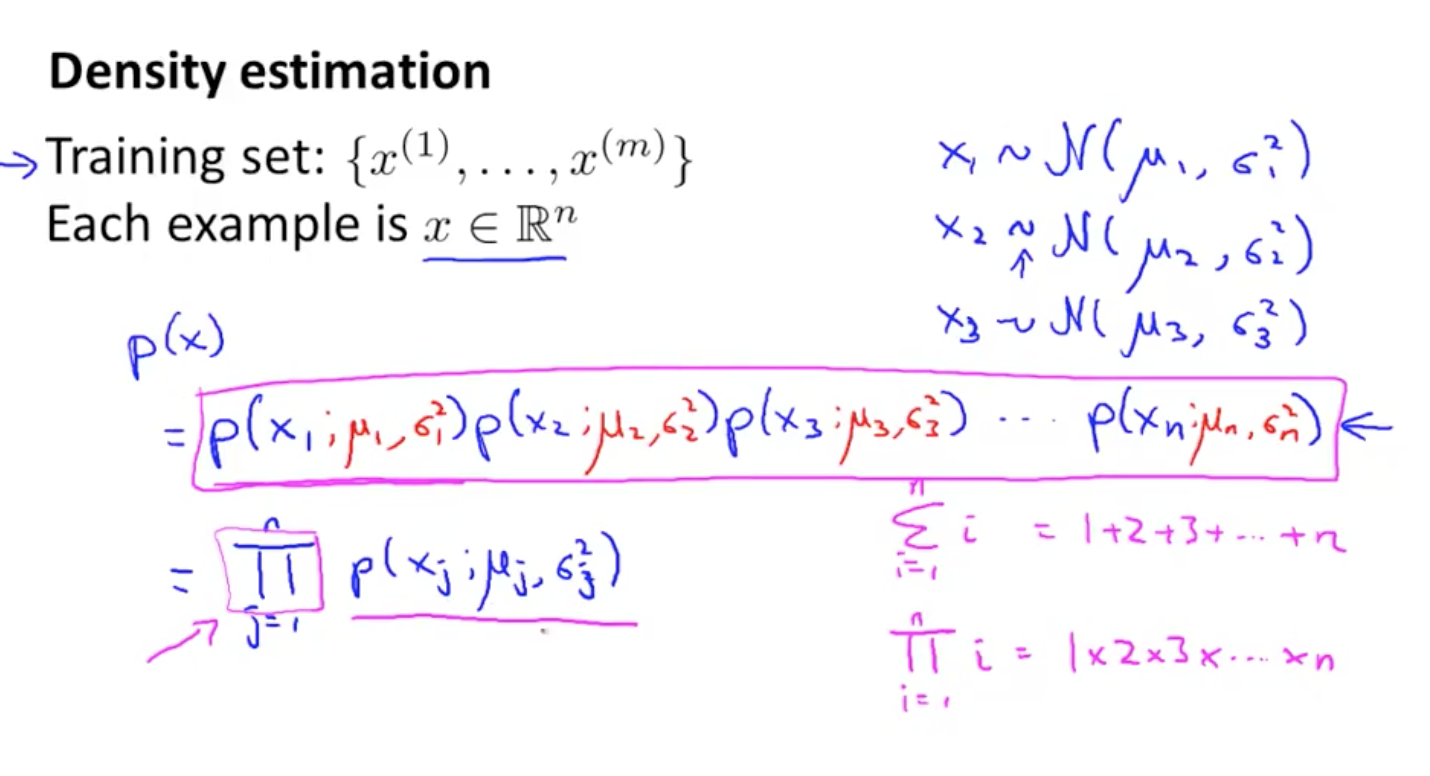 Density estimation
→ Training set: {x^(1), . . . , x^(m)}
Each example is x ∈ ℝ^n
x₁ ~ N(μ₁, σ₁²)
x₂ ~ N(μ₂, σ₂²)
↑
x₃ ~ N(μ₃, σ₃²)
p(x)
= p(x₁; μ₁, σ₁²) p(x₂; μ₂, σ₂²) p(x₃; μ₃, σ₃²) ... p(xₙ; μₙ, σₙ²) ←
= ∏_{j=1}^{n} p(xⱼ; μⱼ, σⱼ²)
∑_{i=1}^{n} i = 1+2+3+...+n
∏_{i=1}^{n} i = 1×2×3×....×n